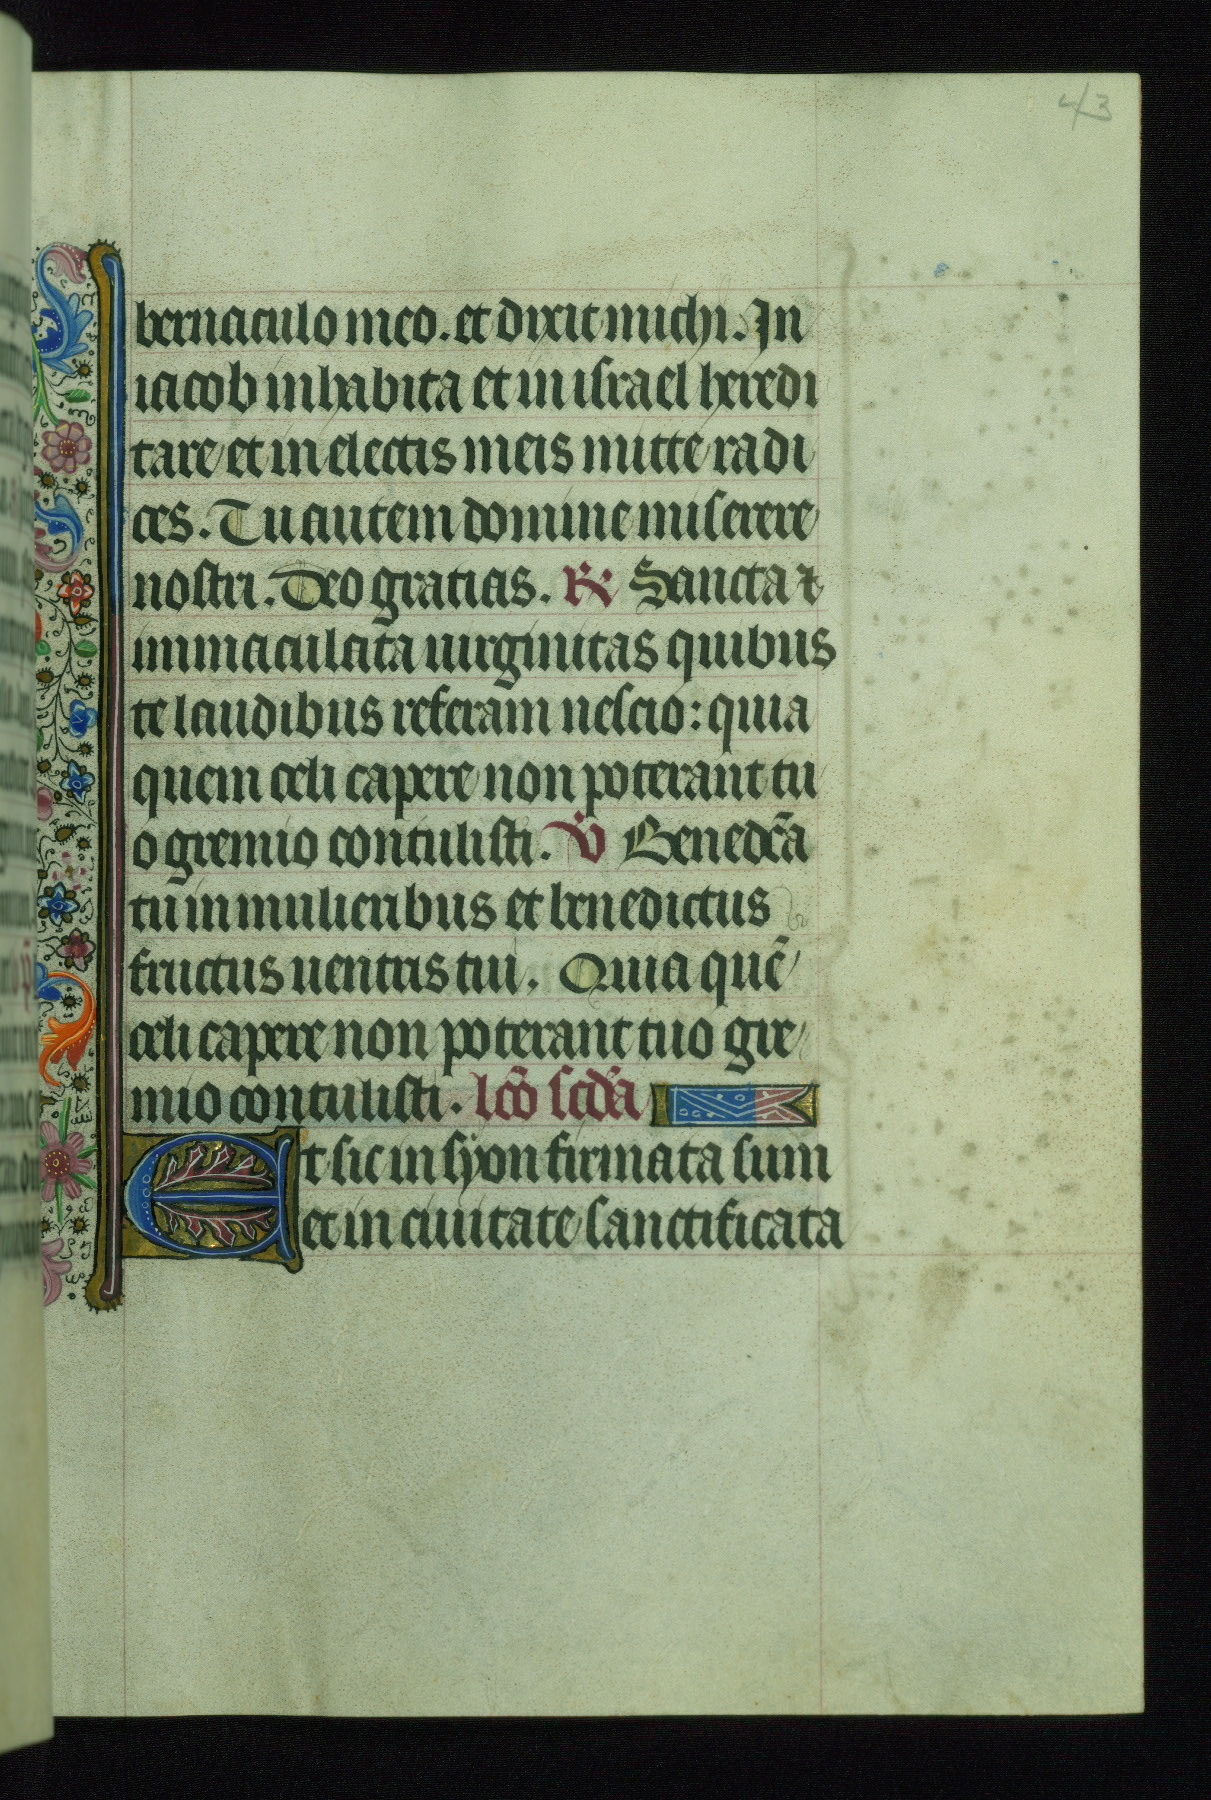 43
bernaculo meo. et dixit michi. In
iacob inhabita et in israel heredi
tare et in electis meis mitte radi
ces. Tu autem domine miserere
nostri. Deo gratias. R Sancta et
immaculata uirginitas quibus
te laudibus referam nescio: quia
quem celi capere non poterant tu
o gremio contulisti. V Benedc̃a
tu in mulieribus et benedictus
fructus uentris tui. Quia quẽ
celi capere non poterant tuo gre
mio contulisti. lc̃o scd̃a
Et sic in syon firmata sum
et in ciuitate sanctificata